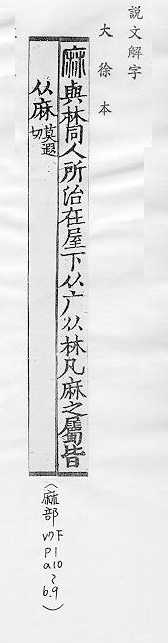 說文解字
大徐本
麻與𣏟同人所治在屋下从广从𣏟凡麻之屬皆
从麻莫遐切
(麻部 v7下 p1 a10~b.9)